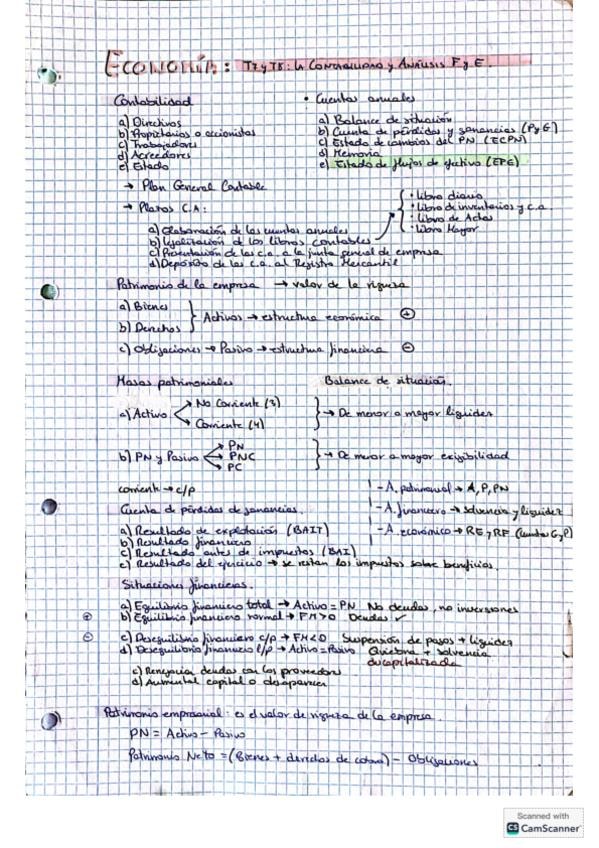 ECONOMÍA: T7 y T8: LA CONTABILIDAD y ANÁLISIS F y E.
Contabilidad
a) Directivos
b) Propietarios o accionistas
c) Trabajadores
d) Acreedores
e) Estado
• Cuentas anuales
a) Balance de situación
b) Cuenta de pérdidas y ganancias (PyG)
c) Estado de cambios del PN (ECPN)
d) Memoria
e) Estado de flujos de efectivo (EFE)
→ Plan General Contable
→ Plazos C.A:
a) Elaboración de las cuentas anuales
b) Legalización de los libros contables
c) Presentación de las c.a. a la junta general de empresa
d) Depósito de las c.a. al Registro Mercantil
· Libro diario
· Libro de inventarios y c.a.
· Libro de Actas
· Libro Mayor
Patrimonio de la empresa → valor de la riqueza
a) Bienes
b) Derechos
Activos → estructura económica +
c) Obligaciones → Pasivo → estructura financiera −
Masas patrimoniales
Balance de situación.
a) Activo
No Corriente (3)
Corriente (4)
→ De menor a mayor liquidez
b) PN y Pasivo
PN
PNC
PC
→ De menor a mayor exigibilidad
corriente → c/p
- A. patrimonial → A, P, PN
- A. financiero → solvencia y liquidez
- A. económico → RE y RF (Cuentas G y P)
Cuenta de pérdidas de ganancias.
a) Resultado de explotación (BAIT)
b) Resultado financiero
c) Resultado antes de impuestos (BAI)
e) Resultado del ejercicio → se restan los impuestos sobre beneficios.
Situaciones financieras.
a) Equilibrio financiero total → Activo = PN No deudas, no inversiones
+ b) Equilibrio financiero normal → FM>0 Deudas ✓
− c) Desequilibrio financiero c/p → FM<0 Suspensión de pagos + liquidez
d) Desequilibrio financiero l/p → Activo = Pasivo Quiebra + solvencia
descapitalizada
c) Renegocia deudas con los proveedores
d) Aumentar capital o desaparecer
Patrimonio empresarial: es el valor de riqueza de la empresa.
PN = Activo - Pasivo
Patrimonio Neto = (Bienes + derechos de cobro) - Obligaciones
Scanned with
CS CamScanner